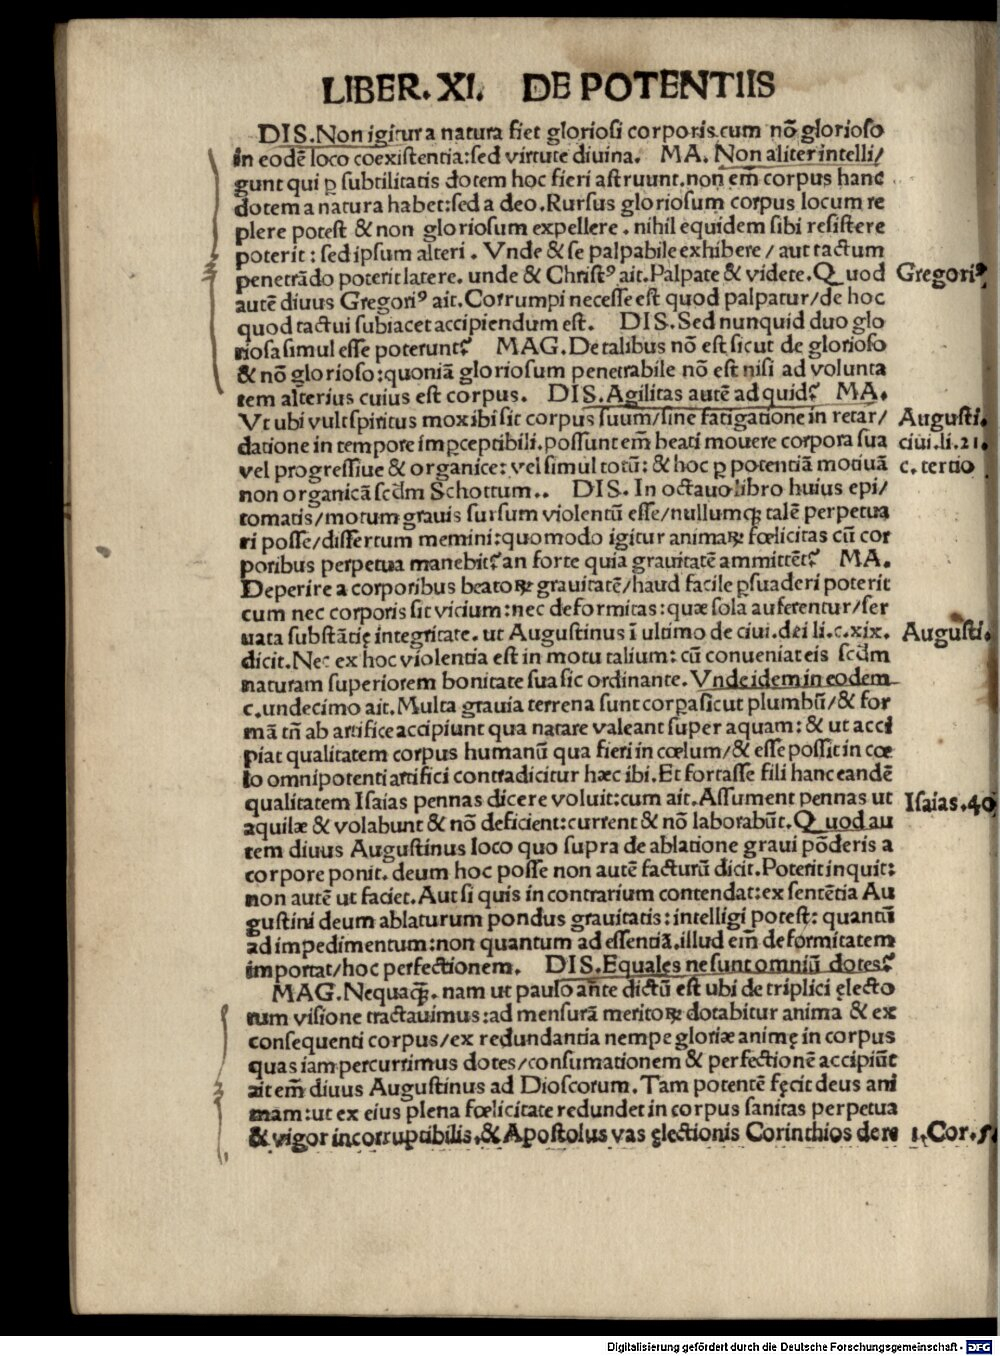 LIBER. XI. DE POTENTIIS
DIS. Non igitur a natura fiet gloriosi corporis cum nõ glorioso
in eodẽ loco coexistentia: sed virtute diuina. MA. Non aliter intelli/
gunt qui ꝑ subtilitatis dotem hoc fieri astruunt. non em̃ corpus hanc
dotem a natura habet: sed a deo. Rursus gloriosum corpus locum re
plere potest & non gloriosum expellere. nihil equidem sibi resistere
poterit: sed ipsum alteri. Vnde & se palpabile exhibere/ aut tactum
penetrãdo poterit latere. unde & Christꝰ ait. Palpate & videte. Quod
Gregoriꝰ
autẽ diuus Gregoriꝰ ait. Corrumpi necesse est quod palpatur/ de hoc
quod tactui subiacet accipiendum est. DIS. Sed nunquid duo glo
riosa simul esse poterunt? MAG. De talibus nõ est sicut de glorioso
& nõ glorioso: quoniã gloriosum penetrabile nõ est nisi ad volunta
tem alterius cuius est corpus. DIS. Agilitas autẽ ad quid? MA.
Vt ubi vult spiritus mox ibi sit corpus suum/ sine fatigatione in retar/
Augusti.
datione in tempore imꝑceptibili. possunt em̃ beati mouere corpora sua
ciui. li. 21.
vel progressiue & organice: vel simul totũ: & hoc ꝑ potentiã motiuã
c. tertio
non organicã scďm Schottum.. DIS. In octauo libro huius epi/
tomatis/ motum grauis sursum violentũ esse/ nullumqꝫ talẽ perpetua
ri posse/ dissertum memini: quomodo igitur animaꝝ fœlicitas cũ cor
poribus perpetua manebit? an forte quia grauitatẽ ammittẽt? MA.
Deperire a corporibus beatoꝝ grauitatẽ/ haud facile ꝑsuaderi poterit
cum nec corporis sit vicium: nec deformitas: quæ sola auferentur/ ser
uata substãtię integritate. ut Augustinus ĩ ultimo de ciui. dei li. c. xix.
Augusti.
dicit. Nec ex hoc violentia est in motu talium: cũ conueniat eis scďm
naturam superiorem bonitate sua sic ordinante. Vnde idem in eodem
c. undecimo ait. Multa grauia terrena sunt corpa sicut plumbũ/ & for
mã tñ ab artifice accipiunt qua natare valeant super aquam: & ut acci
piat qualitatem corpus humanũ qua fieri in cœlum/ & esse possit in cœ
lo omnipotenti artifici contradicitur hæc ibi. Et fortasse fili hanc eandẽ
qualitatem Isaias pennas dicere voluit: cum ait. Assument pennas ut
Isaias. 40
aquilæ & volabunt & nõ deficient: current & nõ laborabũt. Quod au
tem diuus Augustinus loco quo supra de ablatione graui põderis a
corpore ponit. deum hoc posse non autẽ facturũ dicit. Poterit inquit:
non autẽ ut faciet. Aut si quis in contrarium contendat: ex sentẽtia Au
gustini deum ablaturum pondus grauitatis: intelligi potest: quantũ
ad impedimentum: non quantum ad essentiã. illud em̃ deformitatem
importat/ hoc perfectionem. DIS. Equales ne sunt omniũ dotes?
MAG. Nequaqꝫ̃. nam ut paulo añte dictũ est ubi de triplici ęlecto
rum visione tractauimus: ad mensurã meritoꝝ dotabitur anima & ex
consequenti corpus/ ex redundantia nempe gloriæ animę in corpus
quas iam percurrimus dotes/ consumationem & perfectionẽ accipiũt
ait em̃ diuus Augustinus ad Dioscorum. Tam potentẽ fęcit deus ani
mam: ut ex eius plena fœlicitate redundet in corpus sanitas perpetua
& vigor incorruptibilis. & Apostolus vas ęlectionis Corinthios de re
1. Cor.
Digitalisierung gefördert durch die Deutsche Forschungsgemeinschaft - DFG